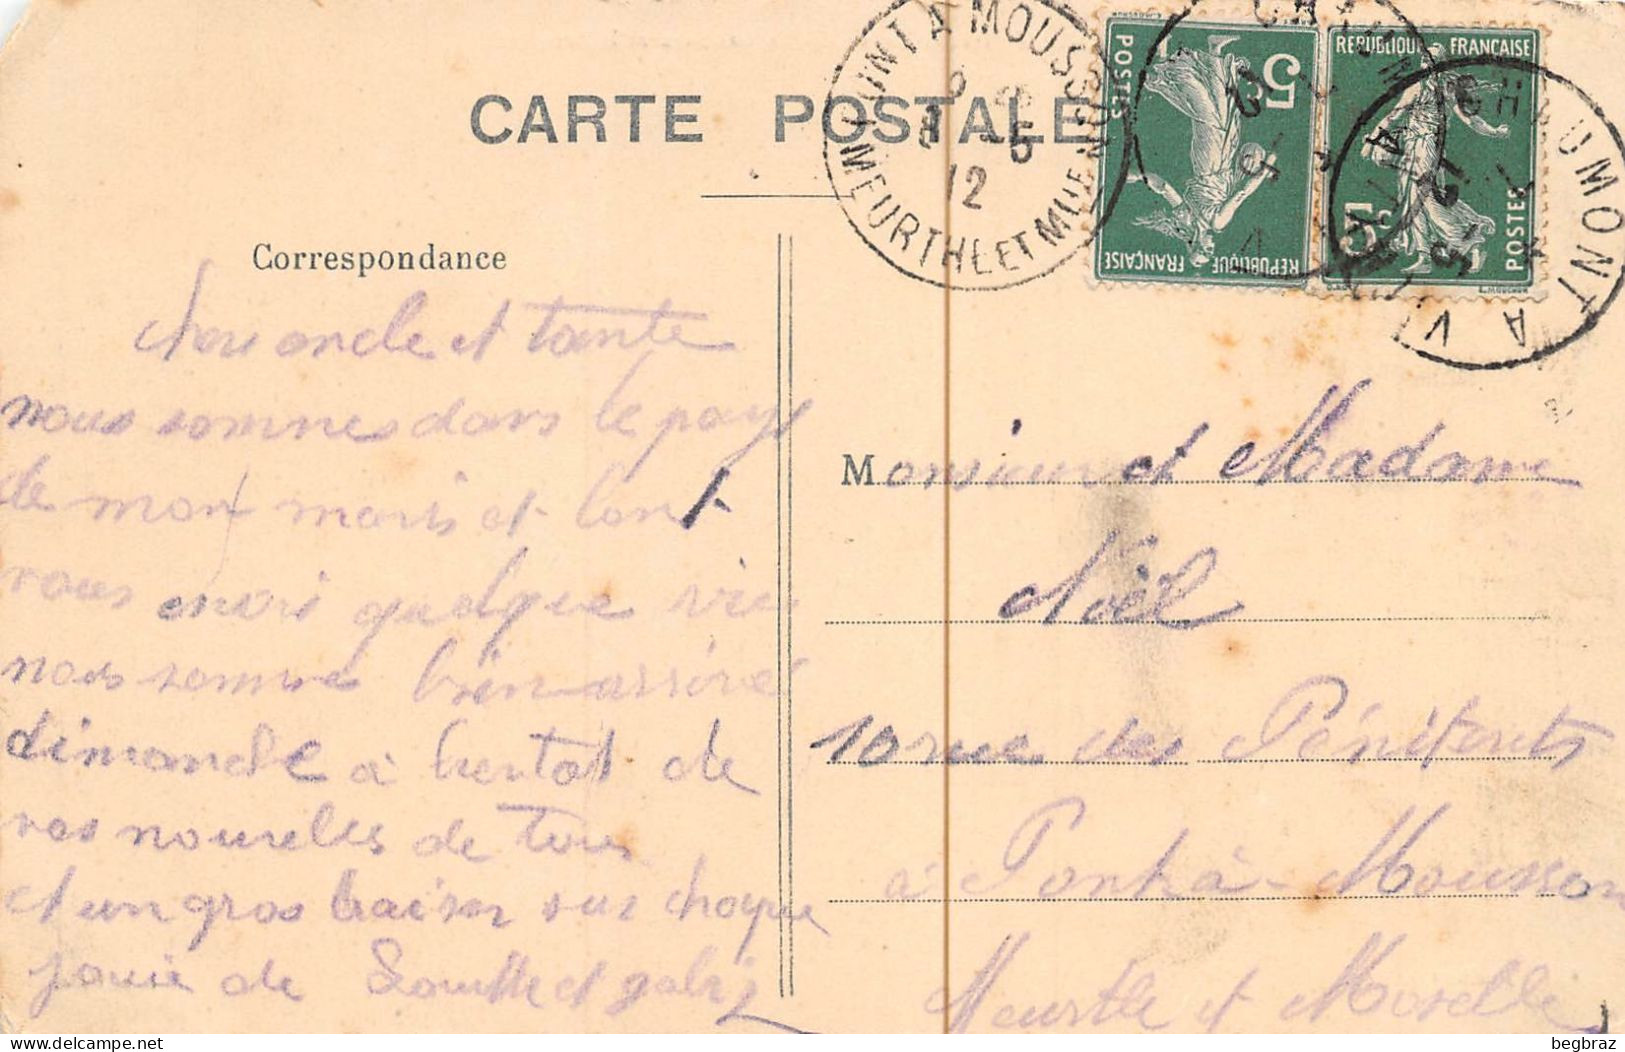 CARTE POSTALE
PONT A MOUSSON
MEURTHE ET MLLE
8 -5
12
POSTES
5c
REPUBLIQUE FRANÇAISE
REPUBLIQUE FRANÇAISE
5c
POSTES
CHAUMONT A V
Correspondance
cher oncle et tante
nous sommes dans le pays
de mon maris et
vous envois quelque vue
nous somme bien arrivé
dimanche à bientot de
vos nouvelles de tous
et un gros baiser sur chaque
joue de et
Monsieur et Madame
Noël
10 rue des Pénitents
à Pont-à-Mousson
Meurthe et Moselle
begbraz